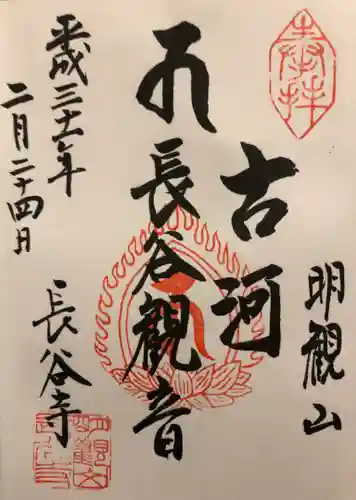 奉拝
明観山
古河
長谷観音
平成三十一年
二月二十四日
長谷寺